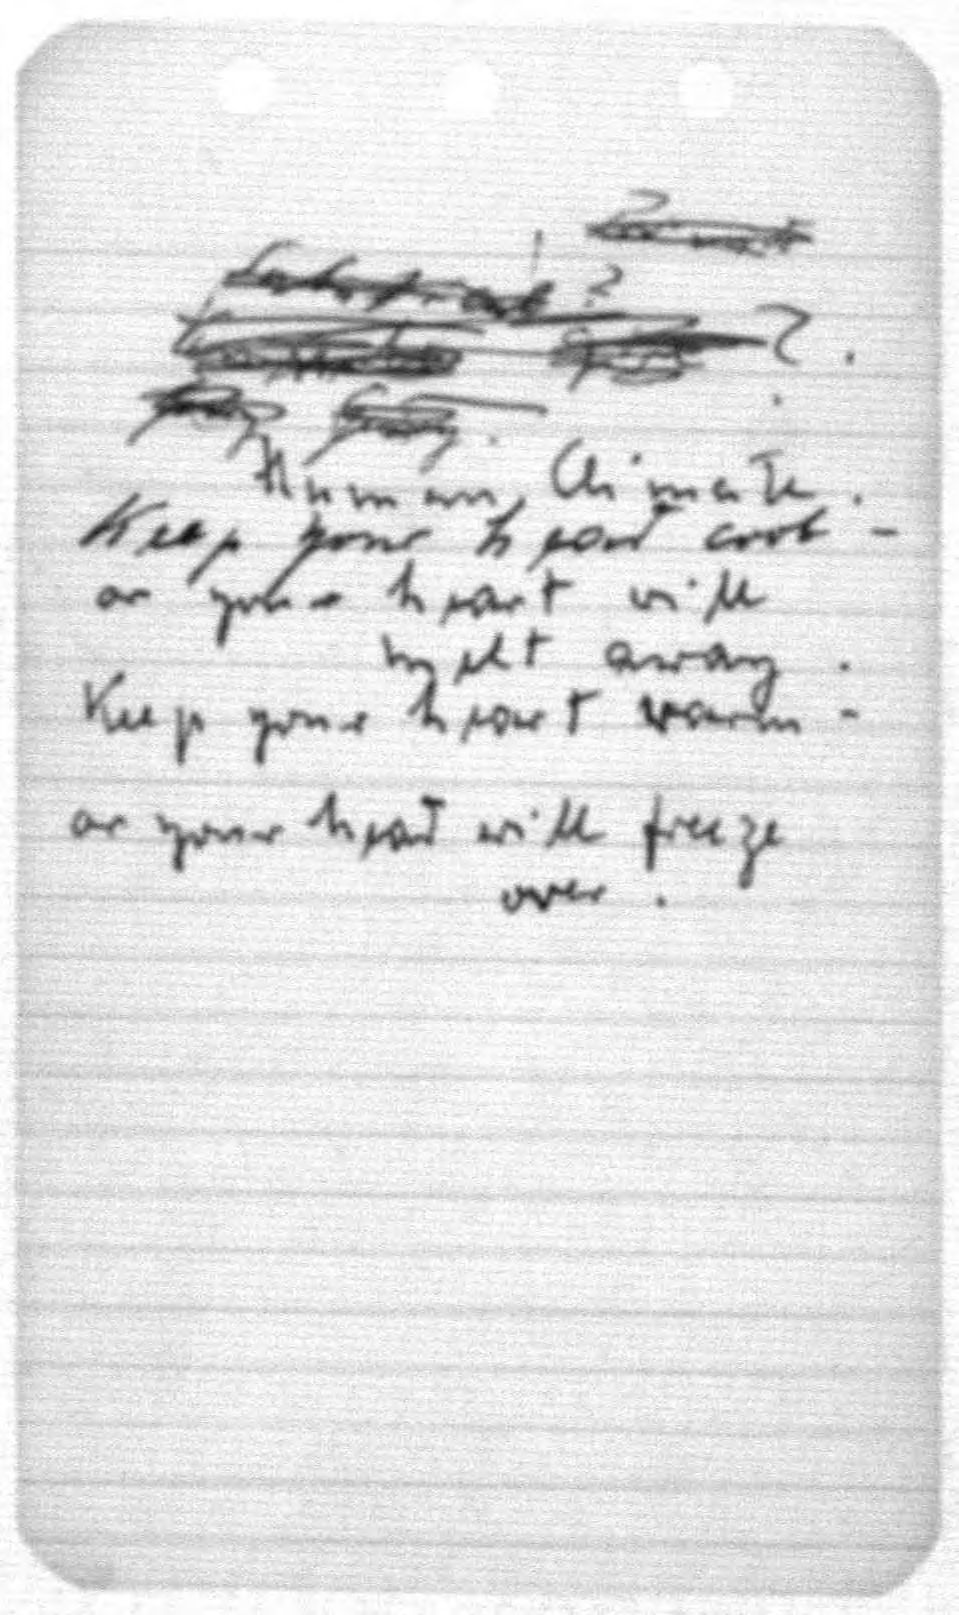 Human Climate.
Keep your head cool -
or your heart will
melt away.
Keep your heart warm -
or your head will freeze
over.